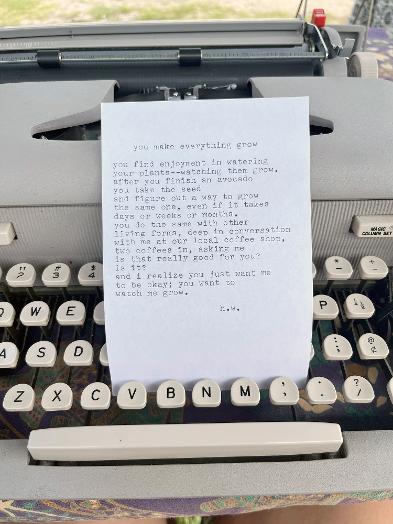 you make everything grow
you find enjoyment in watering
your plants--watching them grow.
after you finish an avocado
you take the seed
and figure out a way to grow
the same one, even if it takes
days or weeks or months.
you do the same with other
living forms, deep in conversation
with me at our local coffee shop,
two coffees in, asking me
is that really good for you?
is it?
and i realize you just want me
to be okay; you want to
watch me grow.
n.w.
MAGIC
COLUMN SET
" 2 # 3 $ 4 * - ¢
Q W E R P
A S D : ; @ ¢
Z X C V B N M , ; . : ? /